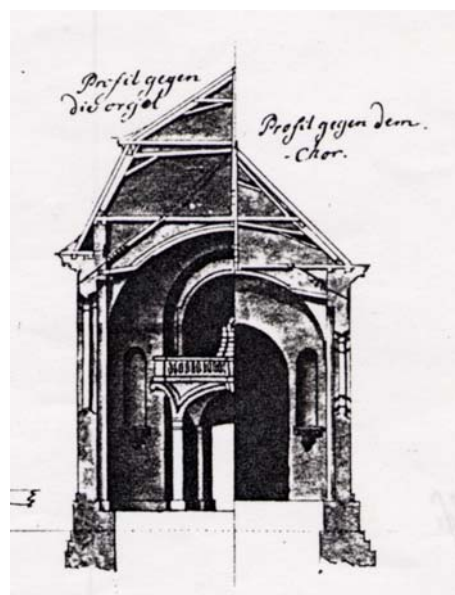 Profil gegen
die orgel
Profil gegen dem.
- Chor.